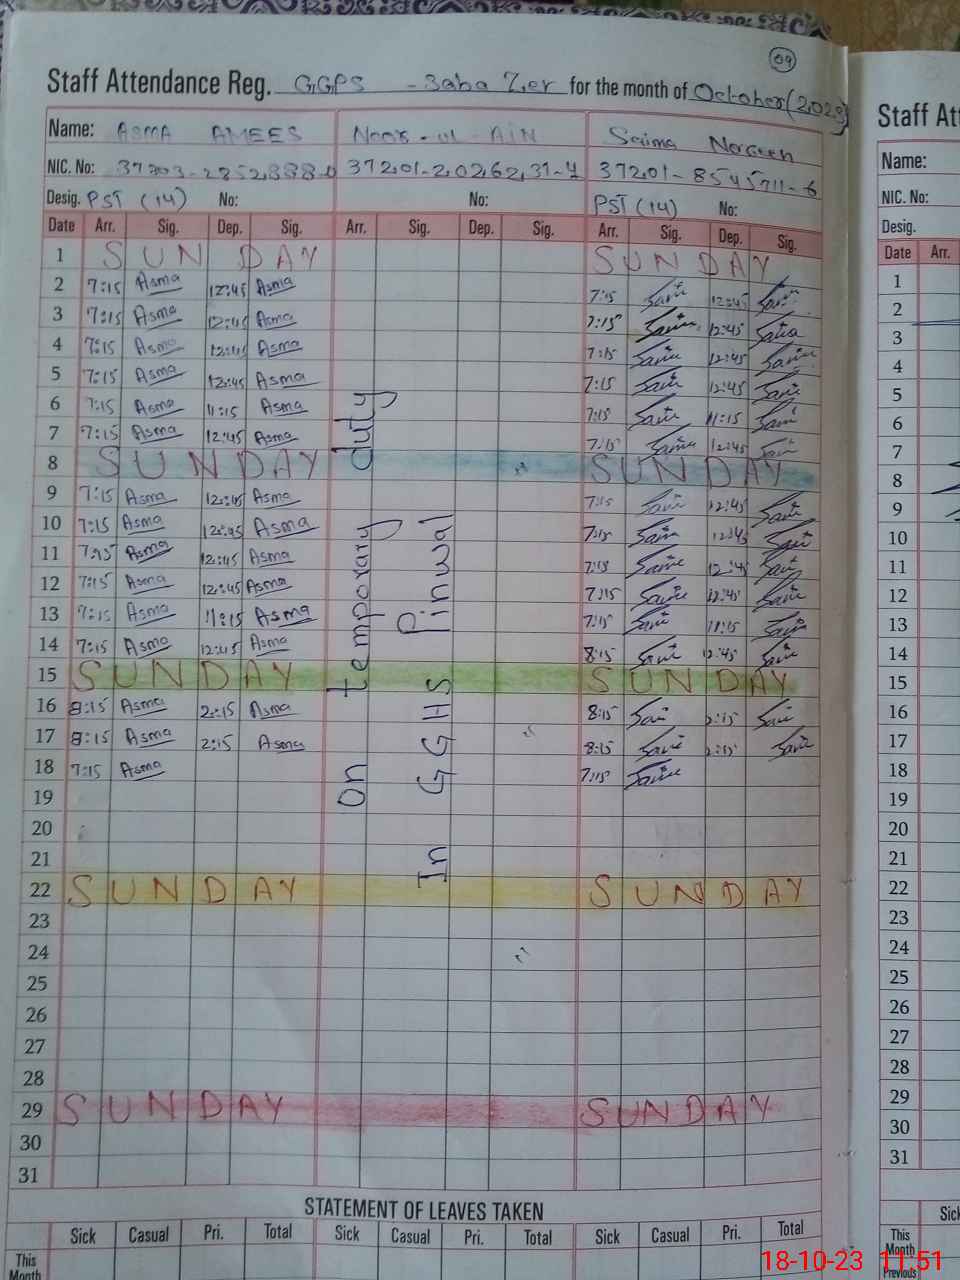 09
Staff Attendance Reg. GGPS - Saba Zer for the month of October (2023)
Name: ASMA AMEES Noor-ul-AIN Saima Noreen
NIC. No:
Desig. PST (14) No: No: PST (14) No:
Date Arr. Sig. Dep. Sig. Arr. Sig. Dep. Sig. Arr. Sig. Dep. Sig.
1 SUNDAY SUNDAY
2 7:15 Asma 12:45 Asma 7:15 12:45
3 7:15 Asma 12:45 Asma 7:15 12:45
4 7:15 Asma 12:45 Asma 7:15 12:45
5 7:15 Asma 12:45 Asma 7:15 12:45
6 7:15 Asma 11:15 Asma 7:15 11:15
7 7:15 Asma 12:45 Asma 7:15 12:45
8 SUNDAY SUNDAY
9 7:15 Asma 12:45 Asma 7:15 12:45
10 7:15 Asma 12:45 Asma 7:15 12:45
11 7:15 Asma 12:45 Asma 7:15 12:45
12 7:15 Asma 12:45 Asma 7:15 12:45
13 7:15 Asma 11:15 Asma 7:15 11:15
14 7:15 Asma 12:45 Asma 8:15 12:45
15 SUNDAY SUNDAY
16 8:15 Asma 2:15 Asma 8:15 2:15
17 8:15 Asma 2:15 Asma 8:15 2:15
18 7:15 Asma 7:15
19
20
21
22 SUNDAY SUNDAY
23
24
25
26
27
28
29 SUNDAY SUNDAY
30
31
On temporary duty
In GGHS Pinwal
STATEMENT OF LEAVES TAKEN
Sick Casual Pri. Total Sick Casual Pri. Total Sick Casual Pri. Total
This Month
Staff Att
Name:
NIC. No:
Desig.
Date Arr.
1
2
3
4
5
6
7
8
9
10
11
12
13
14
15
16
17
18
19
20
21
22
23
24
25
26
27
28
29
30
31
Sick
This Month
Previous
18-10-23 11:51